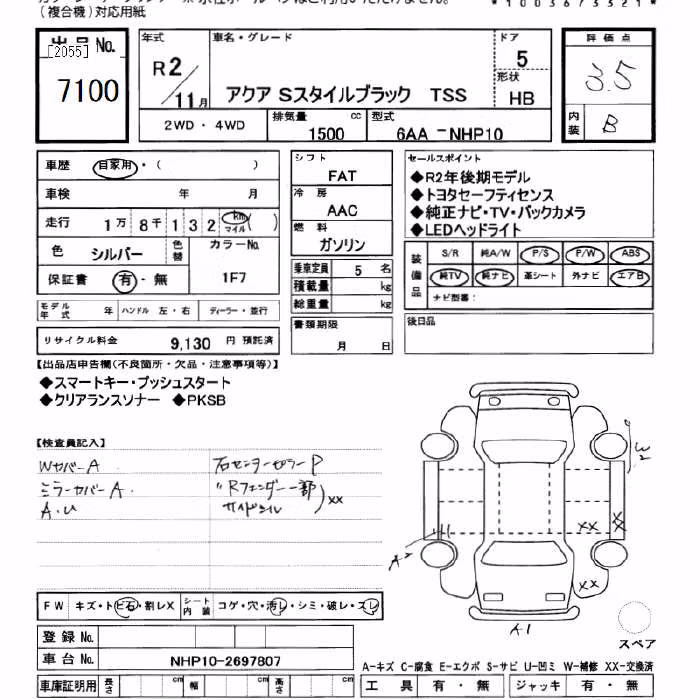 (複合機)対応用紙
*1003673321*
出品No.
[2055]
7100
年式
R2
11月
車名・グレード
アクア Sスタイルブラック TSS
ドア
5
形状
HB
評価点
3.5
内装
B
2WD・4WD
排気量
1500
cc
型式
6AA-NHP10
車歴
自家用・( )
車検
年 月
走行
1万8千132
km
マイル
( )
色
シルバー
色替
カラーNo.
1F7
保証書
有・無
モデル年式
年
ハンドル 左・右
ディーラー・並行
リサイクル料金
9,130 円 預託済
シフト
FAT
冷房
AAC
燃料
ガソリン
乗車定員
5 名
積載量
kg
総重量
kg
書類期限
月 日
セールスポイント
◆R2年後期モデル
◆トヨタセーフティセンス
◆純正ナビ・TV・バックカメラ
◆LEDヘッドライト
装備品
S/R
純A/W
P/S
P/W
ABS
純TV
純ナビ
革シート
外ナビ
エアB
ナビ型番:
後日品
【出品店申告欄(不良箇所・欠品・注意事項等)】
◆スマートキー・プッシュスタート
◆クリアランスソナー ◆PKSB
【検査員記入】
Wカバー A
ミラーカバー A.
A.U
右センターピラー P
〃 Rフェンダー一部
サイドシル
XX
W2
XX
XX
XX
A2
A1
スペア
FW
キズ・ト ビ石・割レX
シート内装
コゲ・穴・汚レ・シミ・破レ・スレ
登録No.
車台No.
NHP10-2697807
車庫証明用
長さ
cm
幅
cm
高さ
cm
A-キズ C-腐食 E-エクボ S-サビ U-凹ミ W-補修 XX-交換済
工具
有・無
ジャッキ
有・無